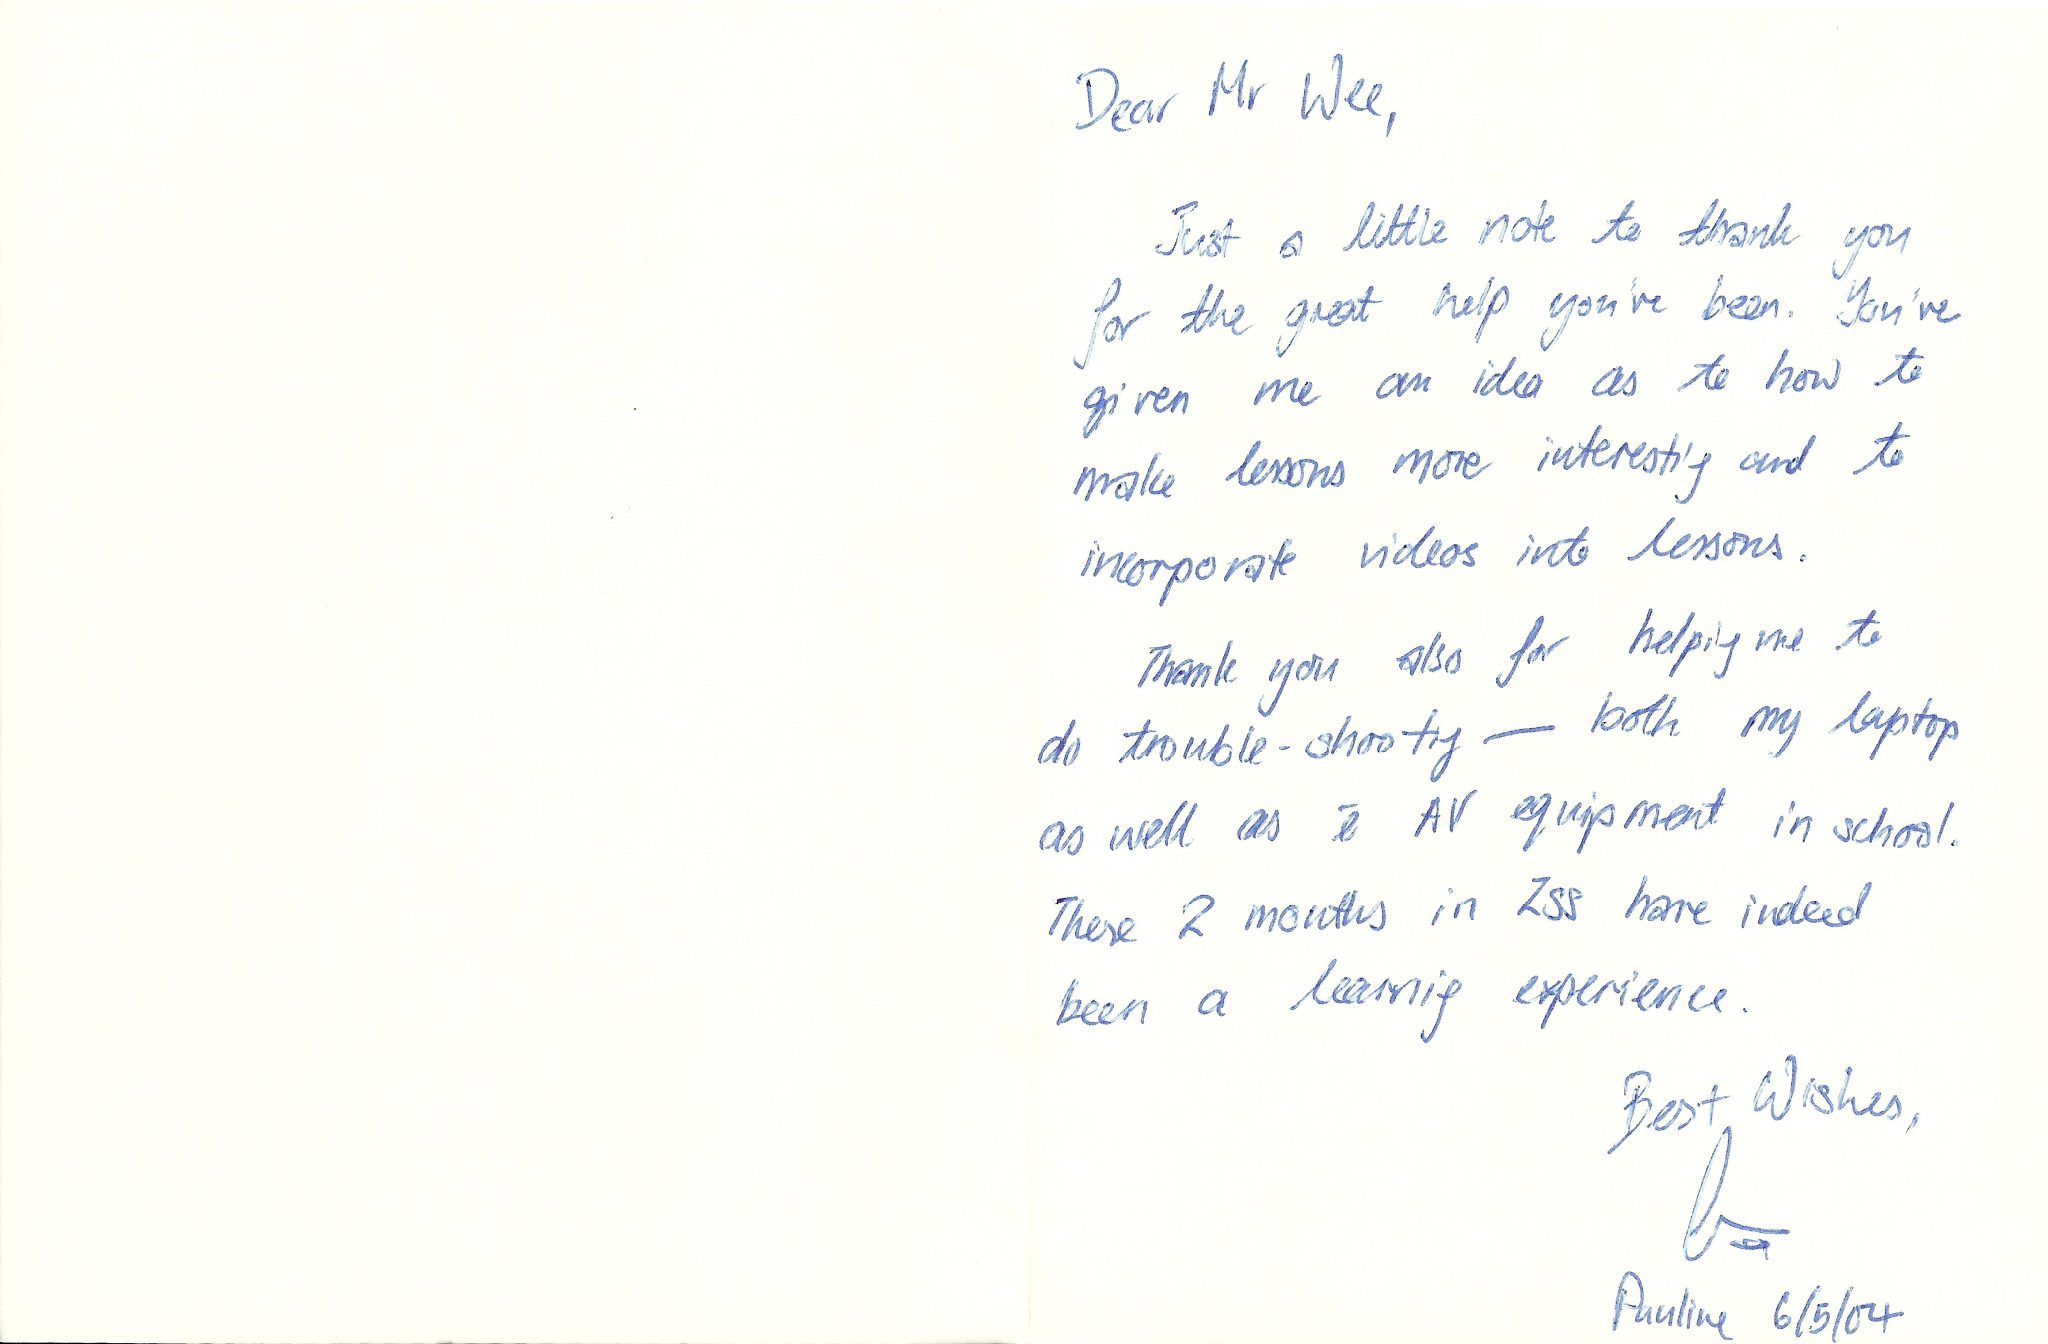 Dear Mr Wee,
Just a little note to thank you
for the great help you've been. You've
given me an idea as to how to
make lessons more interesting and to
incorporate videos into lessons.
Thank you also for helping me to
do trouble-shooting — both my laptop
as well as ē AV equipment in school.
These 2 months in ZSS have indeed
been a learning experience.
Best Wishes,
Pauline 6/5/04